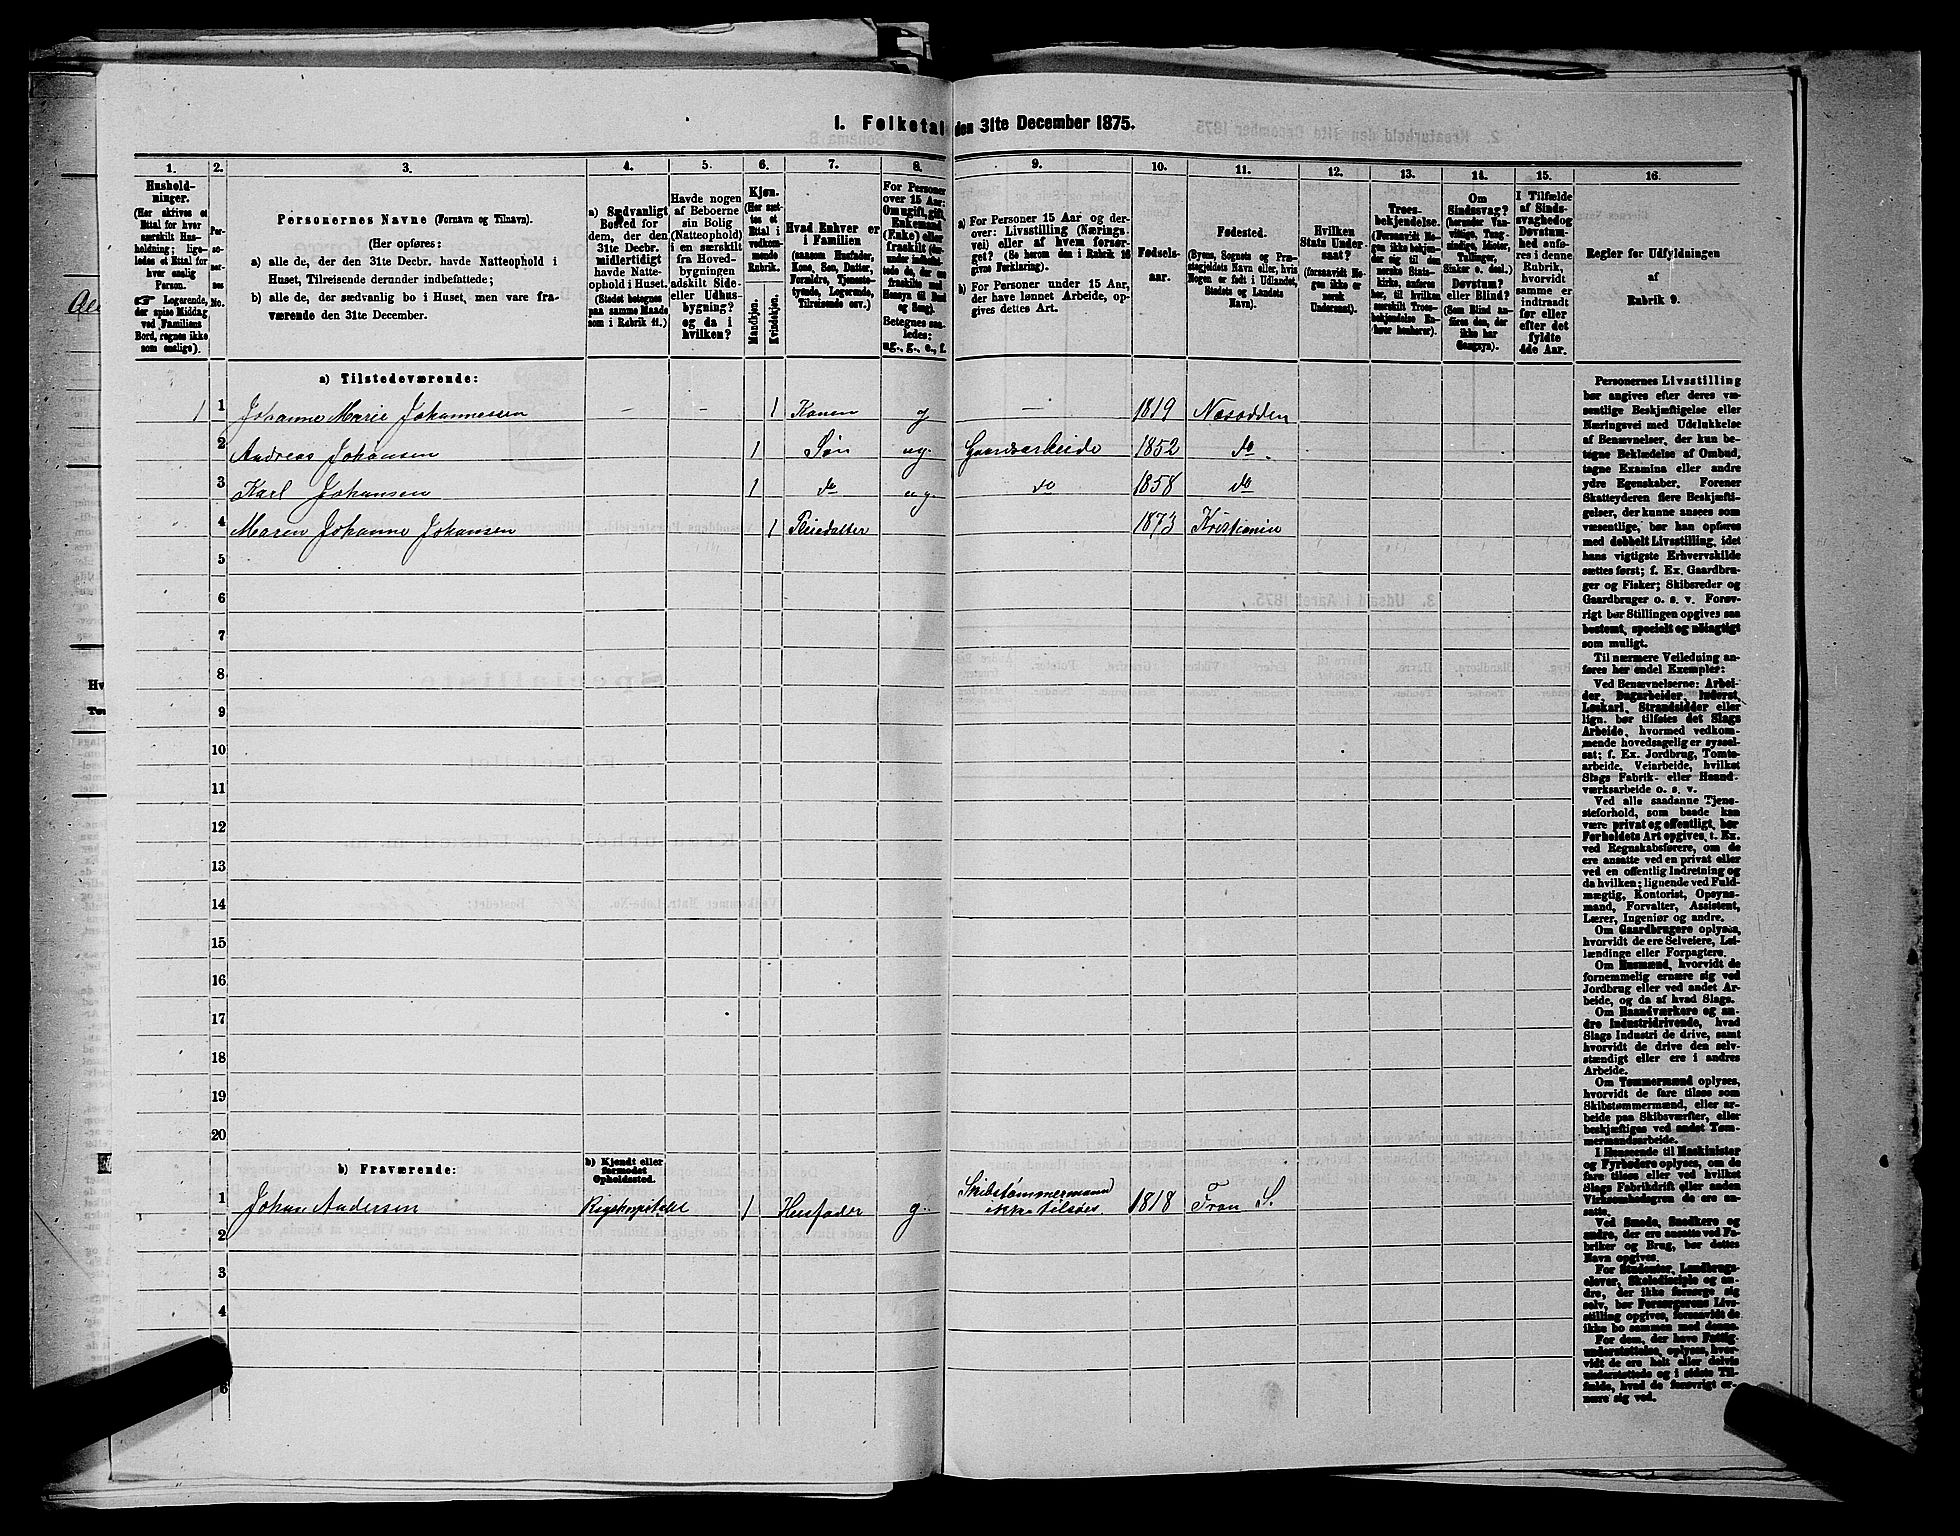 1. Folketal den 31te December 1875.
1. 2. 3. 4. 5. 6. 7. 8. 9. 10. 11. 12. 13. 14. 15. 16.
Hushold-
ninger.
(Her skrives et
Ettal for hver
særskilt Hus-
holdning; lige-
ledes et Ettal for
hver enslig
Person.
☞ Logerende,
der spise Middag
ved Familiens
Bord, regnes ikke
som enslige).
Per-
so-
ner-
nes
No.
Personernes Navne (Fornavn og Tilnavn).
(Her opføres:
a) alle de, der den 31te Decbr. havde Natteophold i
Huset, Tilreisende derunder indbefattede;
b) alle de, der sædvanlig bo i Huset, men vare fra-
værende den 31te December.
a) Sædvanligt
Bosted for
dem, der den
31te Decbr.
midlertidigt
havde Natte-
ophold i Huset.
(Stedet betegnes
paa samme Maade
som i Rubrik 11.)
Havde nogen
af Beboerne
sin Bolig
(Natteophold)
i en særskilt
fra Hoved-
bygningen
adskilt Side-
eller Udhus-
bygning?
og da i
hvilken?
Kjøn.
(Her sæt-
tes et
Ettal i
vedkom-
mende
Rubrik.
Mandkjøn.
Kvindekjøn.
Hvad Enhver er
i Familien
(saasom Husfader,
Kone, Søn, Datter,
Forældre, Tjeneste-
tyende, Logerende,
Tilreisende osv.)
For Personer
over 15 Aar:
Om ugift, gift,
Enkemand
(Enke) eller
fraskilt
Betegnes saa-
ledes:
ug., g., e., f.
a) For Personer 15 Aar og der-
over: Livsstilling (Nærings-
vei) eller af hvem forsør-
get? (Se herom den i Rubrik 16
givne Forklaring).
b) For Personer under 15 Aar,
der have lønnet Arbeide, op-
gives dettes Art.
Fødsels-
aar.
Fødested.
(Byens, Sognets og Præ-
stegjeldets Navn eller, hvis
Nogen er født i Udlandet,
Stedets og Landets
Navn).
Hvilken
Stats Under-
saat?
(forsaavidt No-
gen ikke er
norsk
Undersaat).
Troes-
bekjendelse.
(Forsaavidt No-
gen ikke bekjen-
der sig til den
norske Stats-
kirke, anføres
her, til hvilken
særskilt Troes-
bekjendelse En-
hver henhører).
Om
Sindssvag?
(herunder Van-
vittige, Tung-
sindige, Idioter,
Tullinger,
Sinker o. desl.)
Døvstum?
eller Blind?
(Som Blind an-
føres den, der
ikke har
Gangsyn).
I Tilfælde
af Sinds-
svaghed og
Døvstum-
hed anfø-
res i denne
Rubrik,
hvorvidt
samme er
indtraadt
før eller
efter det
fyldte
4de Aar.
Regler for Udfyldningen
af
Rubrik 9.
a) Tilstedeværende:
1 1 Johanne Marie Johannessen – – 1 Konen g – 1819 Nesodden
2 Andreas Johansen 1 Søn ug. Gaardsarbeide 1852 do
3 Karl Johansen 1 do ug do 1858 do
4 Maren Johanne Johansen 1 Pleiedatter 1873 Kristiania
5
6
7
8
9
10
11
12
13
14
15
16
17
18
19
20
b) Fraværende:
b) Kjendt eller
formodet
Opholdssted.
1 Johan Andersen Rigshospitalet 1 Husfader g. Skibstømmermand 1818
ikke tilsøes
2
3
4
6
Personernes Livsstilling
bør angives efter deres væ-
sentlige Beskjæftigelse eller
Næringsvei med Udelukkelse
af Benævnelser, der kun be-
tegne Beklædelse af Ombud,
tagne Examina eller andre
ydre Egenskaber. Forener
Skatteyderen flere Beskjæfti-
gelser, der kunne ansees som
væsentlige, bør han opføres
med dobbelt Livsstilling, idet
hans vigtigste Erhvervskilde
sættes først; f. Ex. Gaardbru-
ger og Fisker; Skibsreder og
Gaardbruger o. s. v. Forøv-
rigt bør Stillingen opgives saa
bestemt, specielt og nøiagtigt
som muligt.
Til nærmere Veiledning an-
føres her endel Exempler:
Ved Benævnelserne: Arbei-
der, Dagarbeider, Inderst,
Løskarl, Strandsidder eller
lign. bør tilføies det Slags
Arbeide, hvormed vedkom-
mende hovedsagelig er syssel-
sat; f. Ex. Jordbrug, Tomte-
arbeide, Veiarbeide, hvilket
Slags Fabrik- eller Haand-
værksarbeide o. s. v.
Ved alle saadanne Tjene-
steforhold, som baade kan
være privat og offentligt, bør
Forholdets Art opgives, t. Ex.
ved Regnskabsførere, om de
ere ansatte ved en privat eller
ved en offentlig Indretning og
da hvilken; lignende ved Fuld-
mægtig, Kontorist, Opsyns-
mand, Forvalter, Assistent,
Lærer, Ingeniør og andre.
Om Gaardbrugere oplyses,
hvorvidt de ere Selveiere, Lei-
lændinge eller Forpagtere.
Om Husmænd, hvorvidt de
fornemmelig ernære sig ved
Jordbrug eller ved andet Ar-
beide, og da af hvad Slags.
Om Haandværkere og an-
dre Industridrivende, hvad
Slags Industri de drive, samt
hvorvidt de drive den selv-
stændigt eller ere i andres
Arbeide.
Om Tømmermænd oplyses,
hvorvidt de fare tilsøs som
Skibstømmermænd, eller ar-
beide paa Skibsværfter, eller
beskjæftiges ved andet Tøm-
mermandsarbeide.
I Henseende til Maskinister
og Fyrbødere oplyses, om de
fare tilsøs eller ved hvilket
Slags Fabrikdrift eller anden
Virksomhed de ere an-
satte.
Ved Smede, Snedkere og
andre, der ere ansatte ved Fa-
briker og Brug, bør dettes
Navn opgives.
For Studenter, Landbrugs-
elever, Skoledisciple og an-
dre, der ikke forsørge sig
selv, bør Forsørgerens Livs-
stilling opgives, forsaavidt de
ikke bo sammen med denne.
For dem, der have Fattig-
understøttelse, oplyses, hvor-
vidt de ere helt eller delvis
understøttede og i sidste Til-
fælde, hvad de forøvrigt er-
nære sig ved.